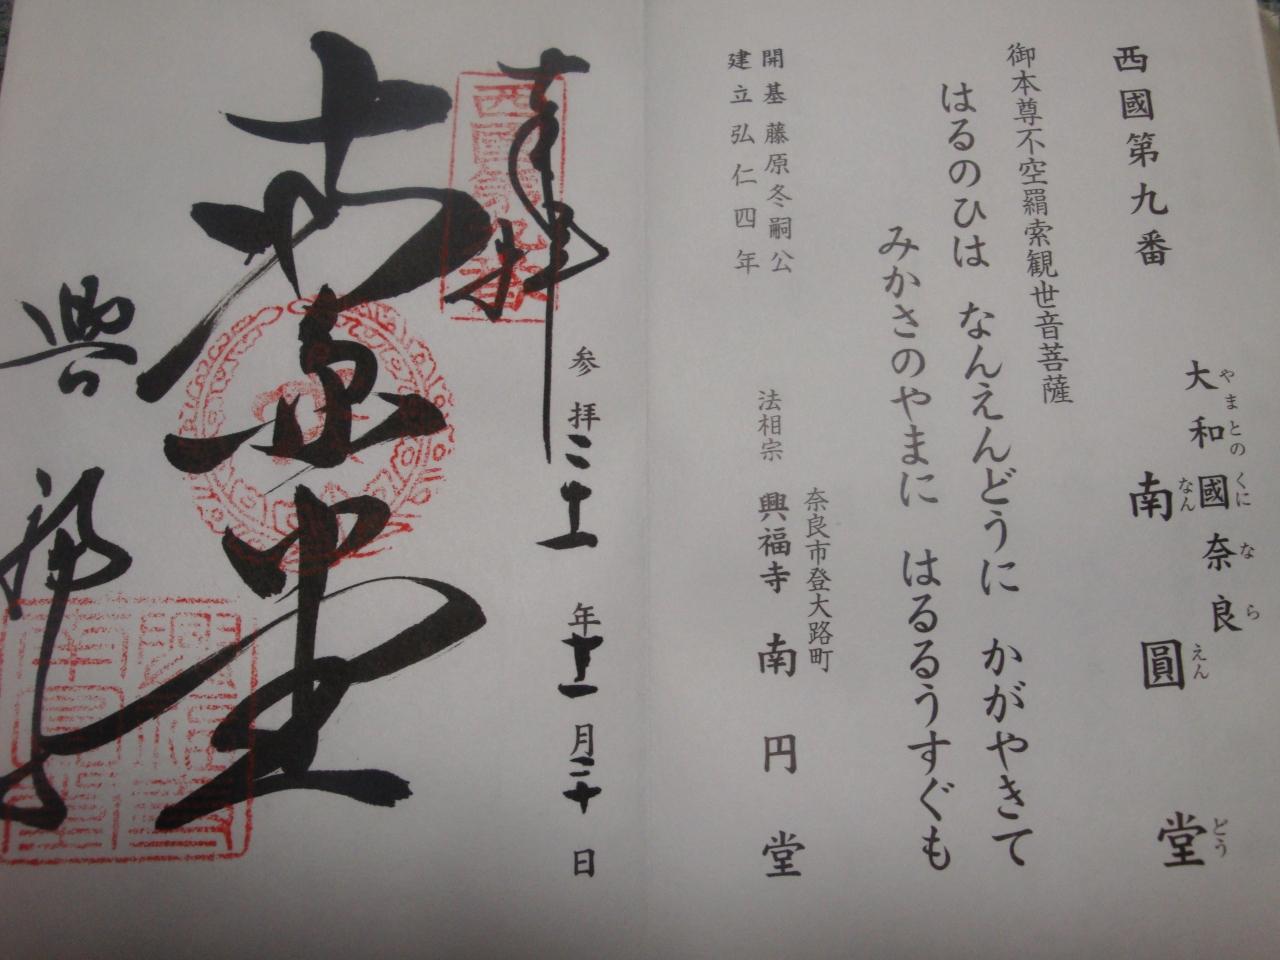 西國第九番
大和國奈良
やまとのくになら
南圓堂
なんえんどう
御本尊不空羂索観世音菩薩
はるのひは なんえんどうに かがやきて
みかさのやまに はるるうすぐも
開基藤原冬嗣公
建立弘仁四年
奈良市登大路町
法相宗 興福寺 南円堂
奉拝
参拝二十一年十一月二十日
西國第九番
南円堂
興福寺